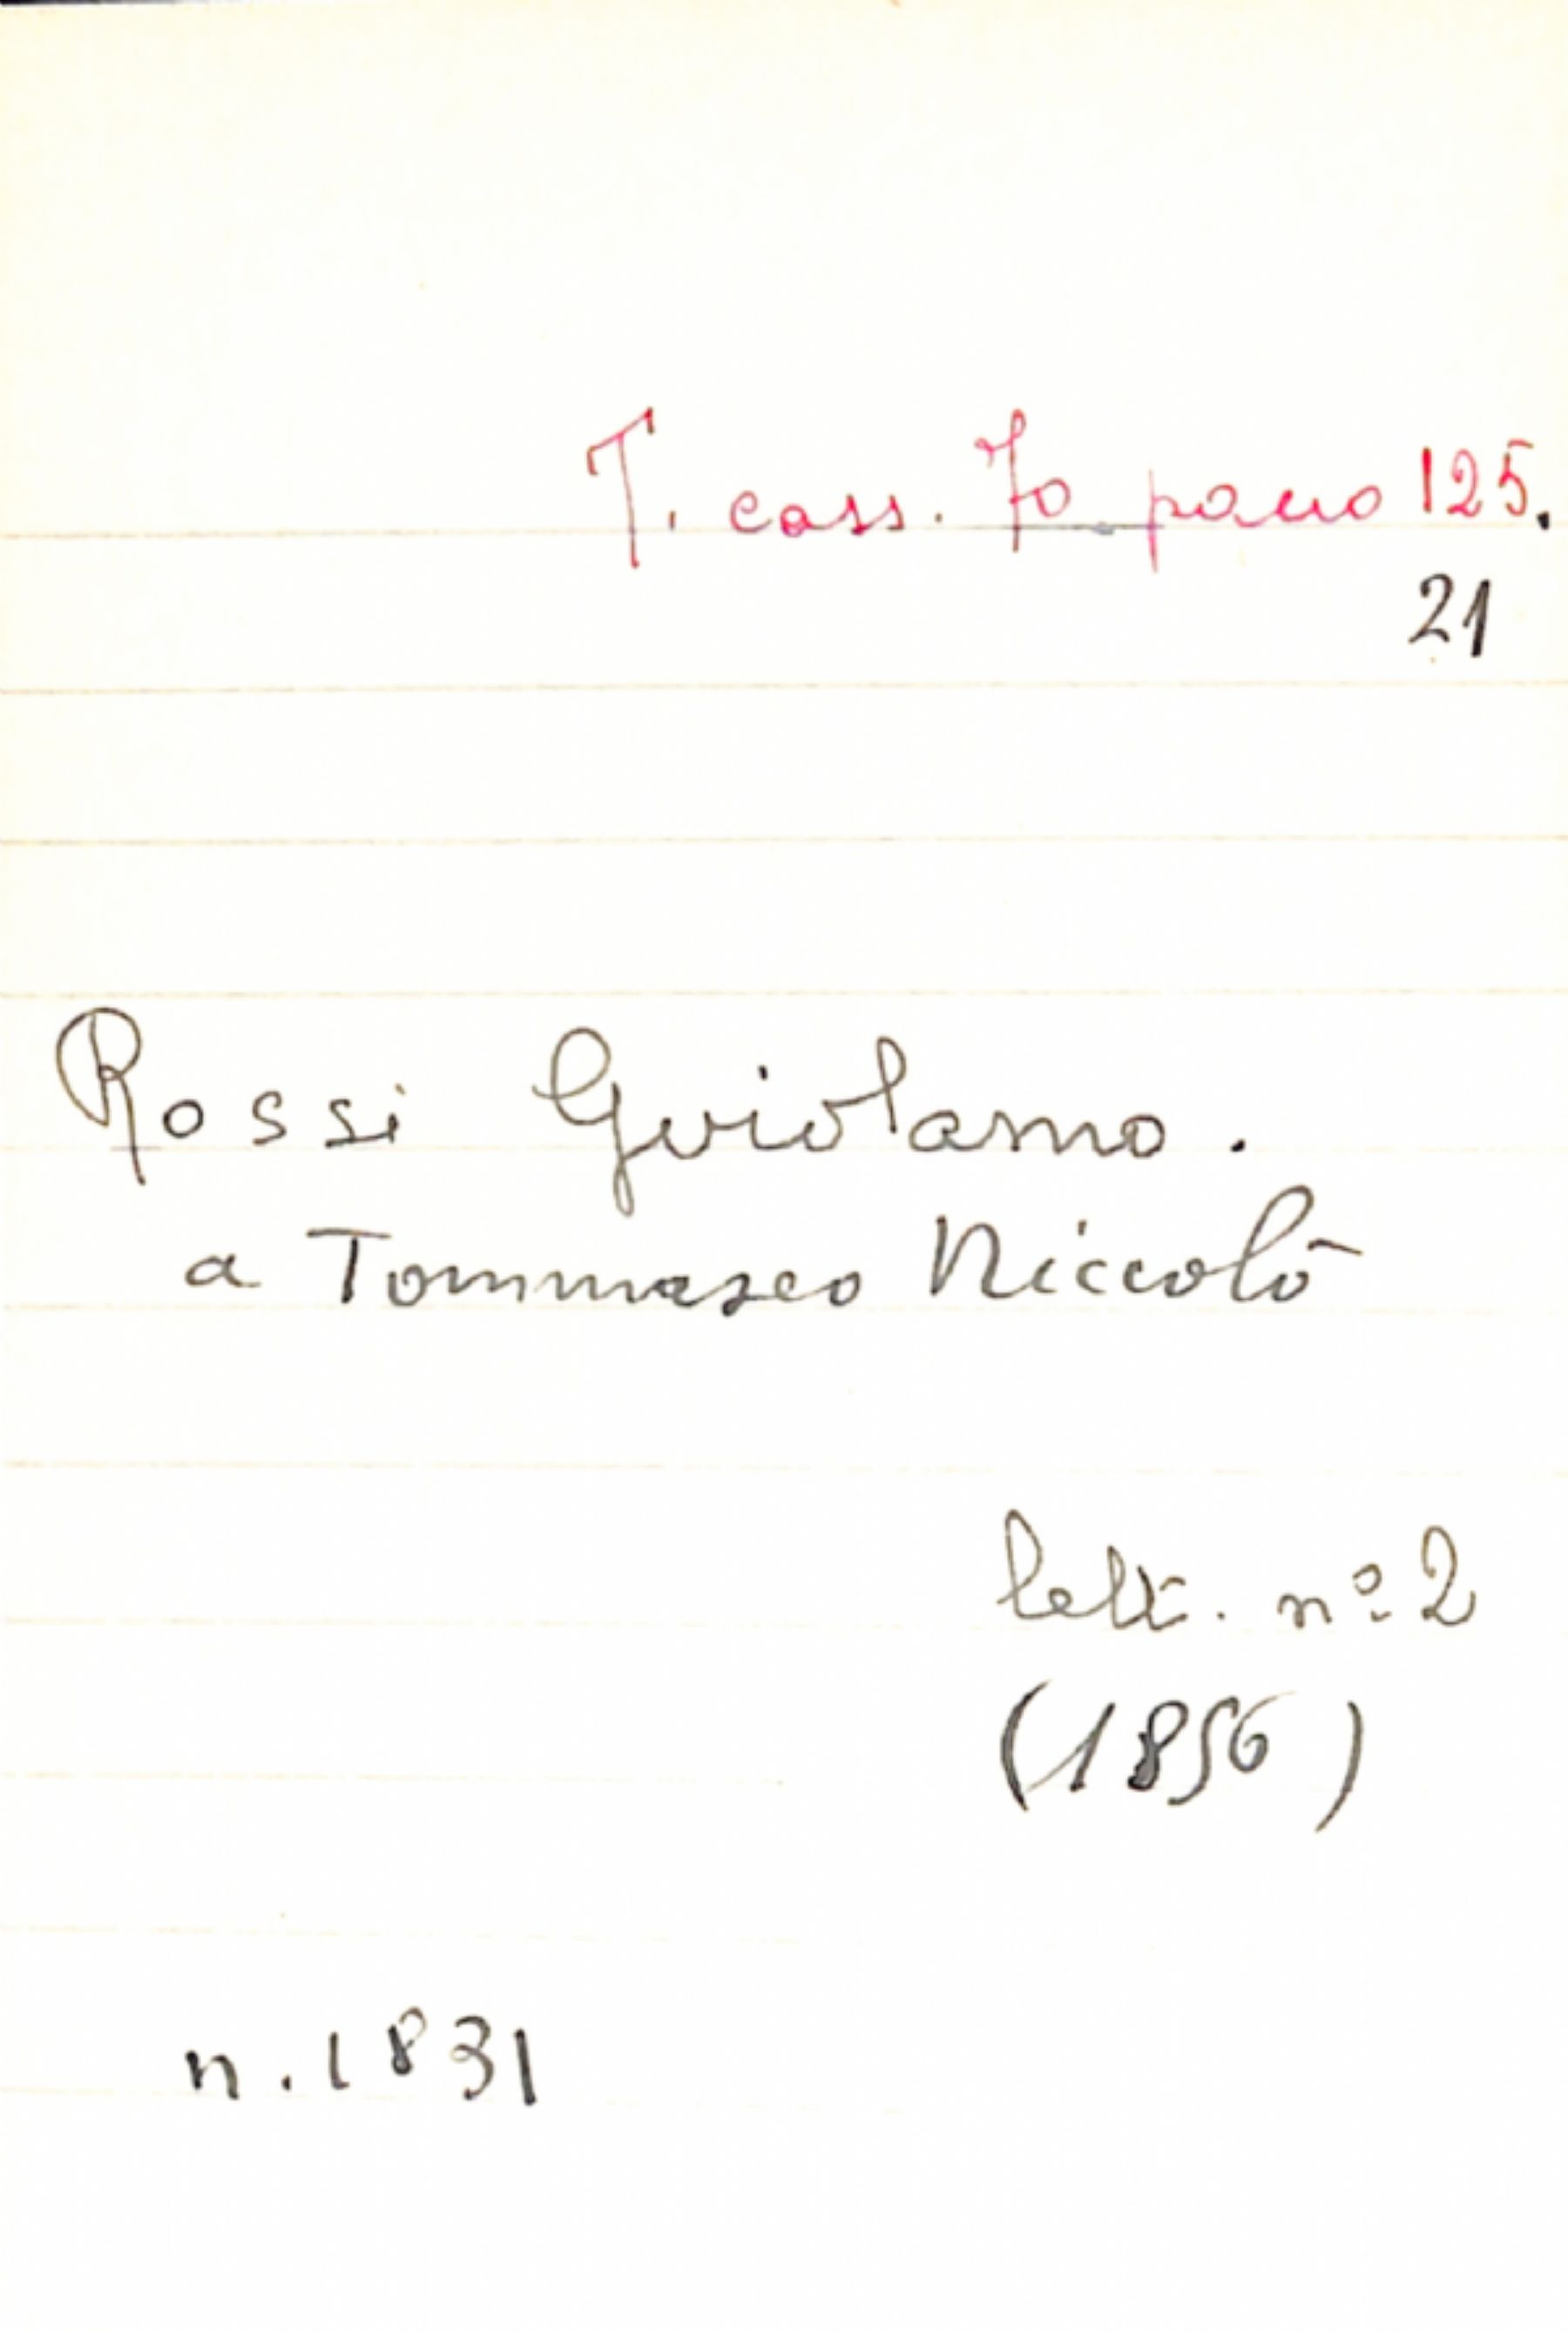 T. cass. 70 pacco 125.
21
Rossi Girolamo.
a Tommaseo Niccolò
lett. nº 2
(1856)
n. 1831